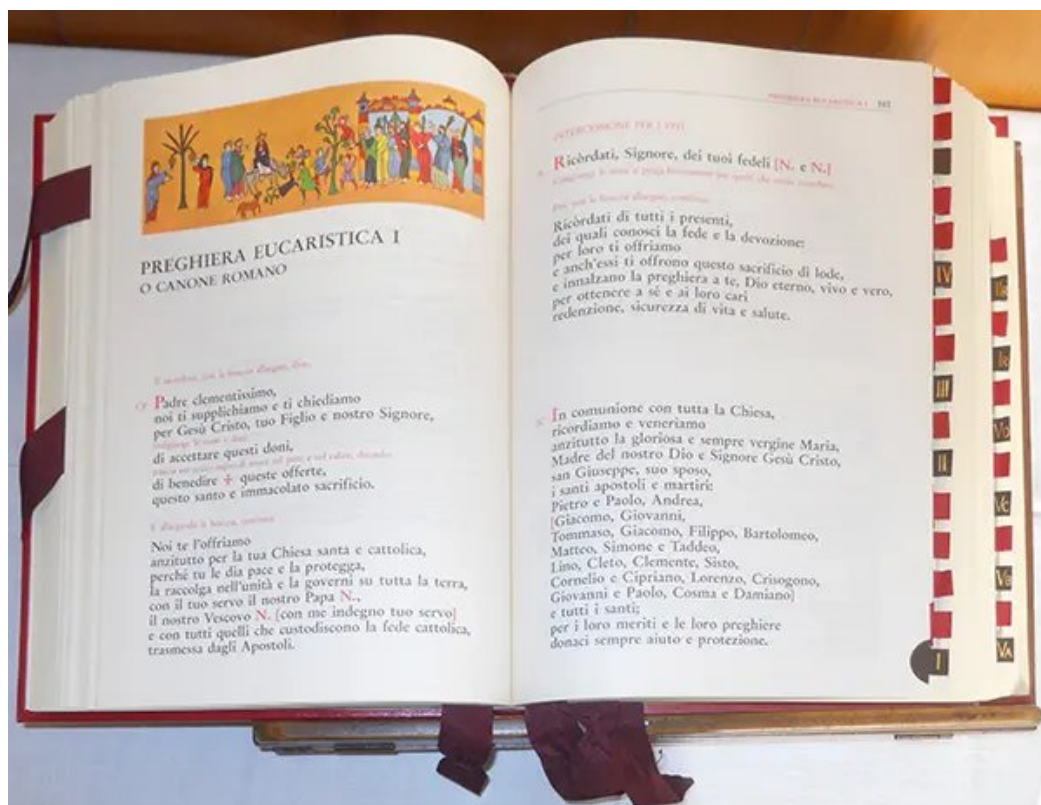 PREGHIERA EUCARISTICA I
O CANONE ROMANO
Il sacerdote, con le braccia allargate, dice:
CP Padre clementissimo,
noi ti supplichiamo e ti chiediamo
per Gesù Cristo, tuo Figlio e nostro Signore,
congiunge le mani e dice:
di accettare questi doni,
di benedire ✠ queste offerte,
questo santo e immacolato sacrificio.
E allargando le braccia, continua:
Noi te l'offriamo
anzitutto per la tua Chiesa santa e cattolica,
perché tu le dia pace e la protegga,
la raccolga nell'unità e la governi su tutta la terra,
con il tuo servo il nostro Papa N.,
il nostro Vescovo N. [con me indegno tuo servo]
e con tutti quelli che custodiscono la fede cattolica,
trasmessa dagli Apostoli.
PREGHIERA EUCARISTICA I
INTERCESSIONE PER I VIVI
Ricòrdati, Signore, dei tuoi fedeli [N. e N.]
Poi, con le braccia allargate, continua:
Ricòrdati di tutti i presenti,
dei quali conosci la fede e la devozione:
per loro ti offriamo
e anch'essi ti offrono questo sacrificio di lode,
e innalzano la preghiera a te, Dio eterno, vivo e vero,
per ottenere a sé e ai loro cari
redenzione, sicurezza di vita e salute.
In comunione con tutta la Chiesa,
ricordiamo e veneriamo
anzitutto la gloriosa e sempre vergine Maria,
Madre del nostro Dio e Signore Gesù Cristo,
san Giuseppe, suo sposo,
i santi apostoli e martiri:
Pietro e Paolo, Andrea,
[Giacomo, Giovanni,
Tommaso, Giacomo, Filippo, Bartolomeo,
Matteo, Simone e Taddeo,
Lino, Cleto, Clemente, Sisto,
Cornelio e Cipriano, Lorenzo, Crisogono,
Giovanni e Paolo, Cosma e Damiano]
e tutti i santi;
per i loro meriti e le loro preghiere
donaci sempre aiuto e protezione.
IV
III
II
I
VD
VC
VB
VA